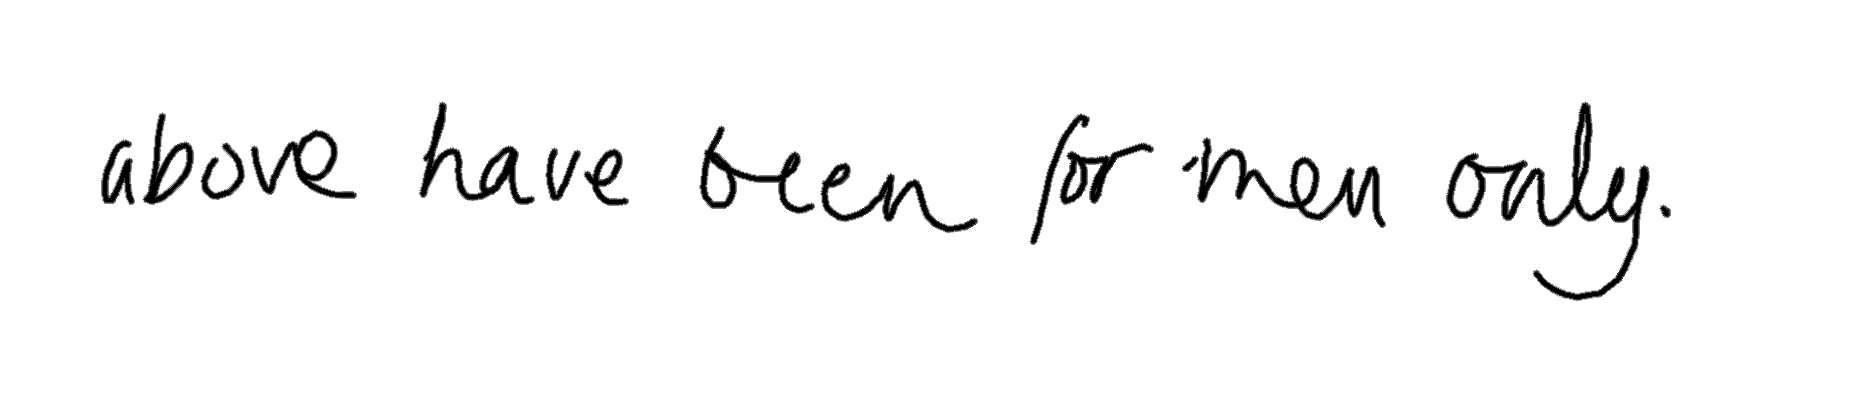 above have been for men only.